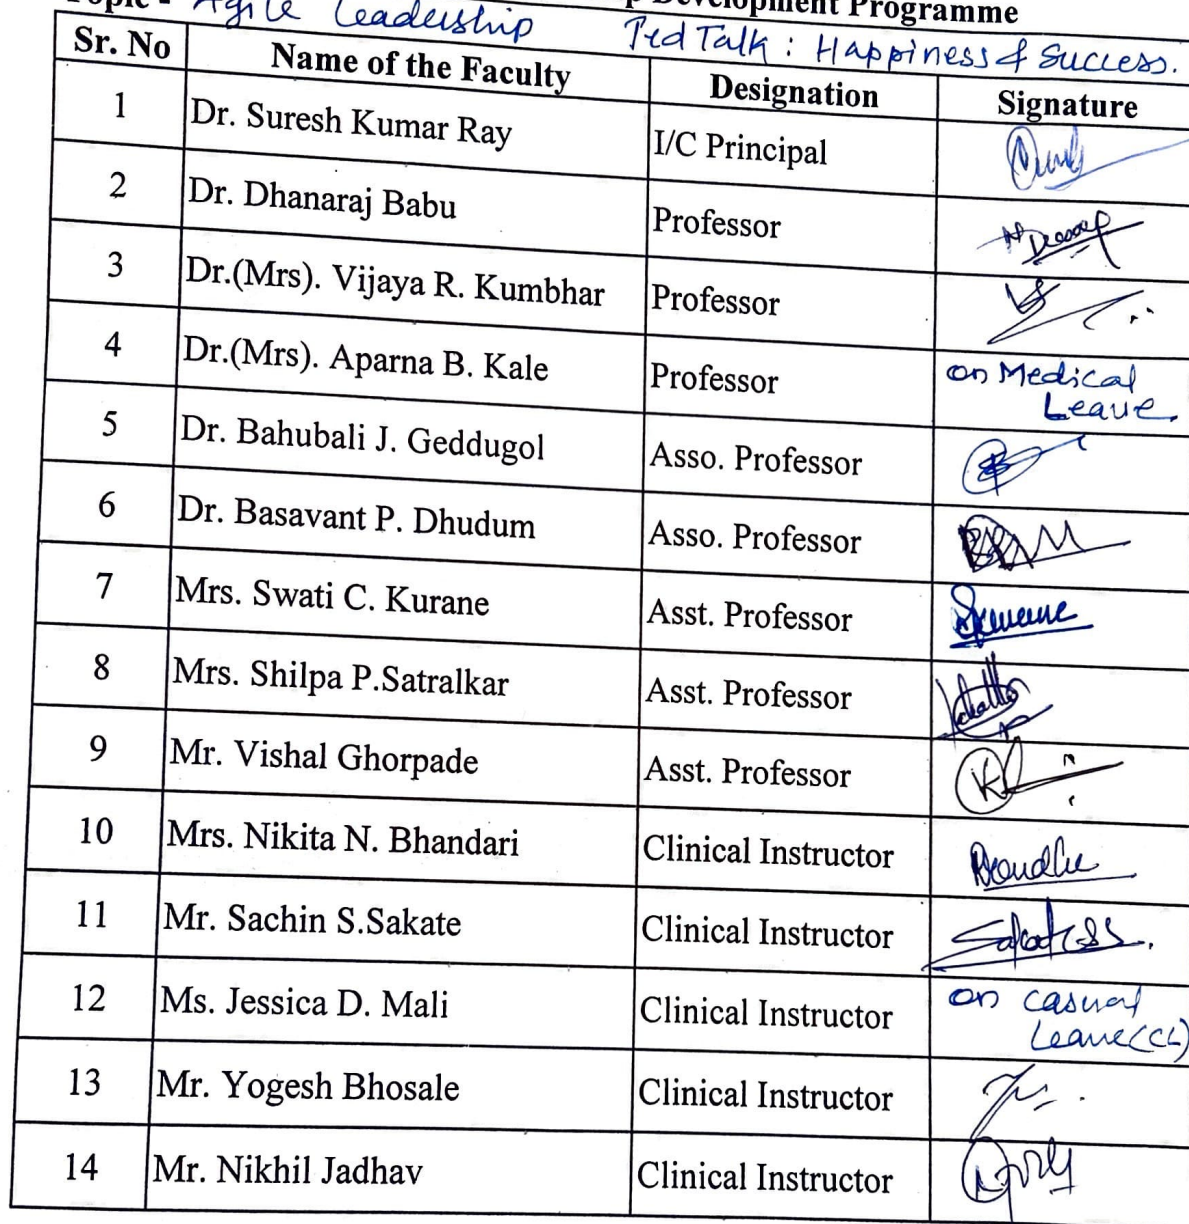 Topic - Agile Leadership Development Programme
Ted Talk : Happiness & Success.
Sr. No Name of the Faculty Designation Signature
1 Dr. Suresh Kumar Ray I/C Principal
2 Dr. Dhanaraj Babu Professor
3 Dr.(Mrs). Vijaya R. Kumbhar Professor
4 Dr.(Mrs). Aparna B. Kale Professor on Medical
Leave.
5 Dr. Bahubali J. Geddugol Asso. Professor
6 Dr. Basavant P. Dhudum Asso. Professor
7 Mrs. Swati C. Kurane Asst. Professor
8 Mrs. Shilpa P.Satralkar Asst. Professor
9 Mr. Vishal Ghorpade Asst. Professor
10 Mrs. Nikita N. Bhandari Clinical Instructor
11 Mr. Sachin S.Sakate Clinical Instructor
12 Ms. Jessica D. Mali Clinical Instructor on casual
Leave(CL)
13 Mr. Yogesh Bhosale Clinical Instructor
14 Mr. Nikhil Jadhav Clinical Instructor